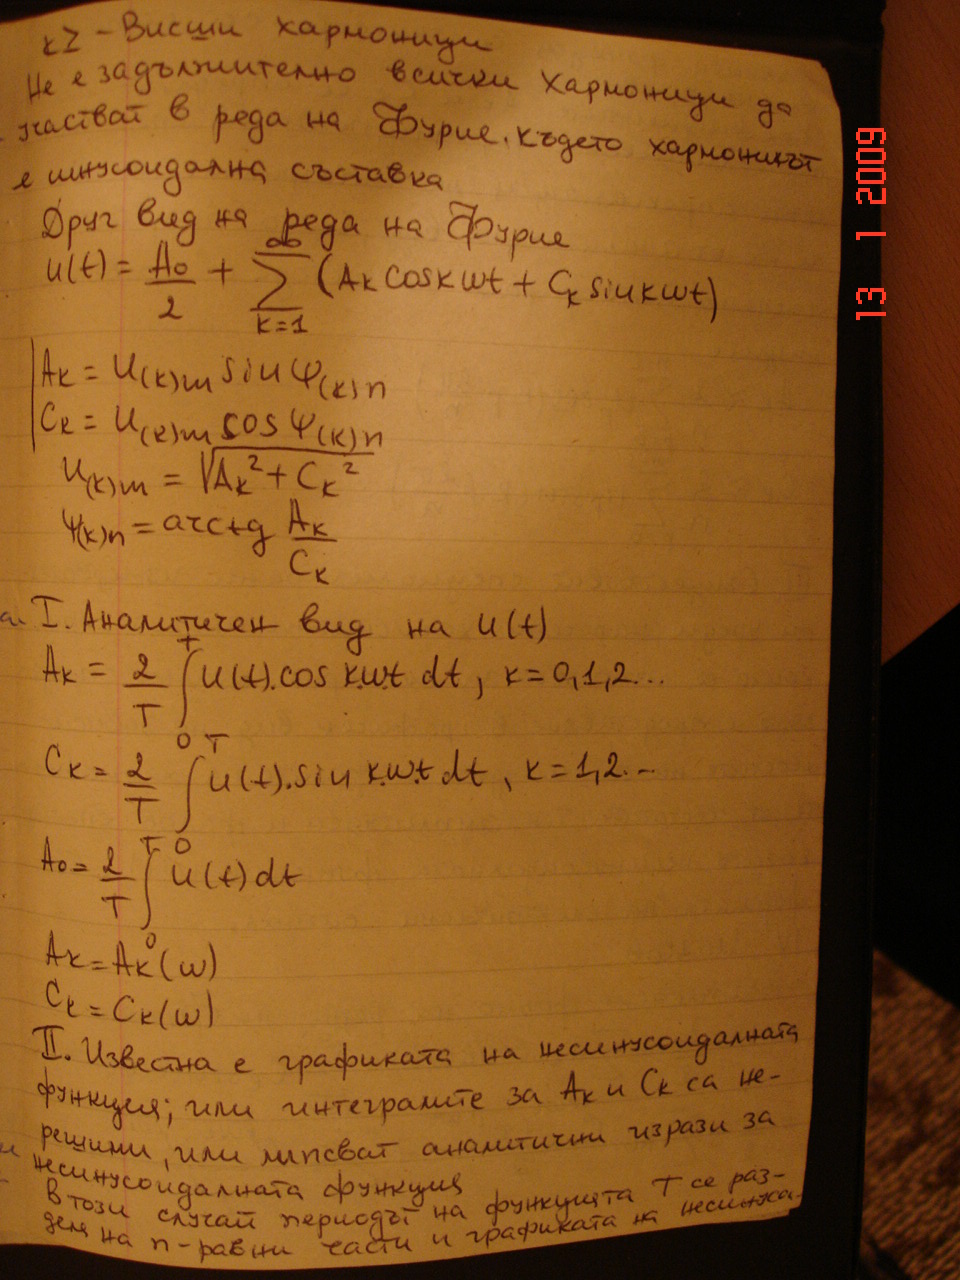 k2 - Висши хармоници
Не е задължително всички хармоници да
участват в реда на Фурие, където хармоникът
е синусоидална съставка
Друг вид на реда на Фурие
u(t) = A₀/2 + ∑_{k=1}^{∞} (Aₖ cos kωt + Cₖ sin kωt)
Aₖ = U₍ₖ₎ₘ sin Ψ₍ₖ₎ₙ
Cₖ = U₍ₖ₎ₘ cos Ψ₍ₖ₎ₙ
U₍ₖ₎ₘ = √(Aₖ² + Cₖ²)
Ψ₍ₖ₎ₙ = arctg Aₖ/Cₖ
I. Аналитичен вид на u(t)
Aₖ = 2/T ∫₀ᵀ u(t).cos k.ω.t dt, k = 0,1,2...
Cₖ = 2/T ∫₀ᵀ u(t).sin k.ω.t dt, k = 1,2...
A₀ = 2/T ∫₀ᵀ u(t) dt
Aₖ = Aₖ(ω)
Cₖ = Cₖ(ω)
II. Известна е графиката на несинусоидалната
функция; или интегралите за Aₖ и Cₖ са не-
решими, или липсват аналитични изрази за
несинусоидалната функция
В този случай периодът на функцията T се раз-
деля на n-равни части и графиката на несинусо-
13 1 2009